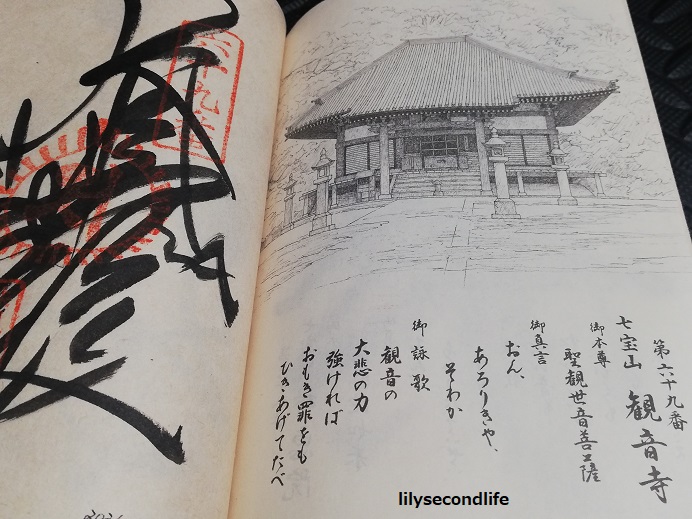 第六十九番
七宝山 観音寺
御本尊
聖観世音菩薩
御真言
おん、
あろりきや、
そわか
御詠歌
観音の
大悲の力
強ければ
おもき罪をも
ひきあげてたべ
lilysecondlife